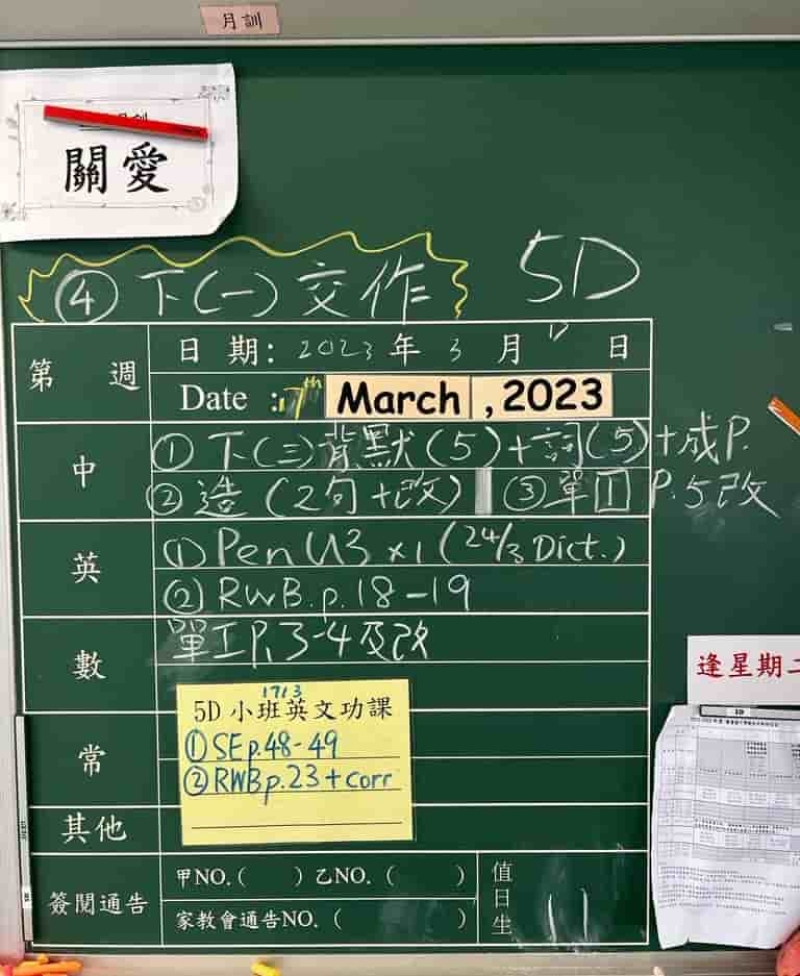 月訓
關愛
④下(一)交作 5D
第 週
日期: 2023年 3月 17日
Date : 17th March , 2023
中
①下(三)背默(5)+詞(5)+成P.
②造(2句+改) ③單 P.5改
英
①Pen U3 x1 (24/3 Dict.)
②RWB.p.18-19
數
單工P.3-4及改
常
17/3
5D小班英文功課
①SE p.48-49
②RWB p.23+corr
其他
簽閱通告
甲NO.( ) 乙NO.( )
家教會通告NO.( )
值日生 11
逢星期二